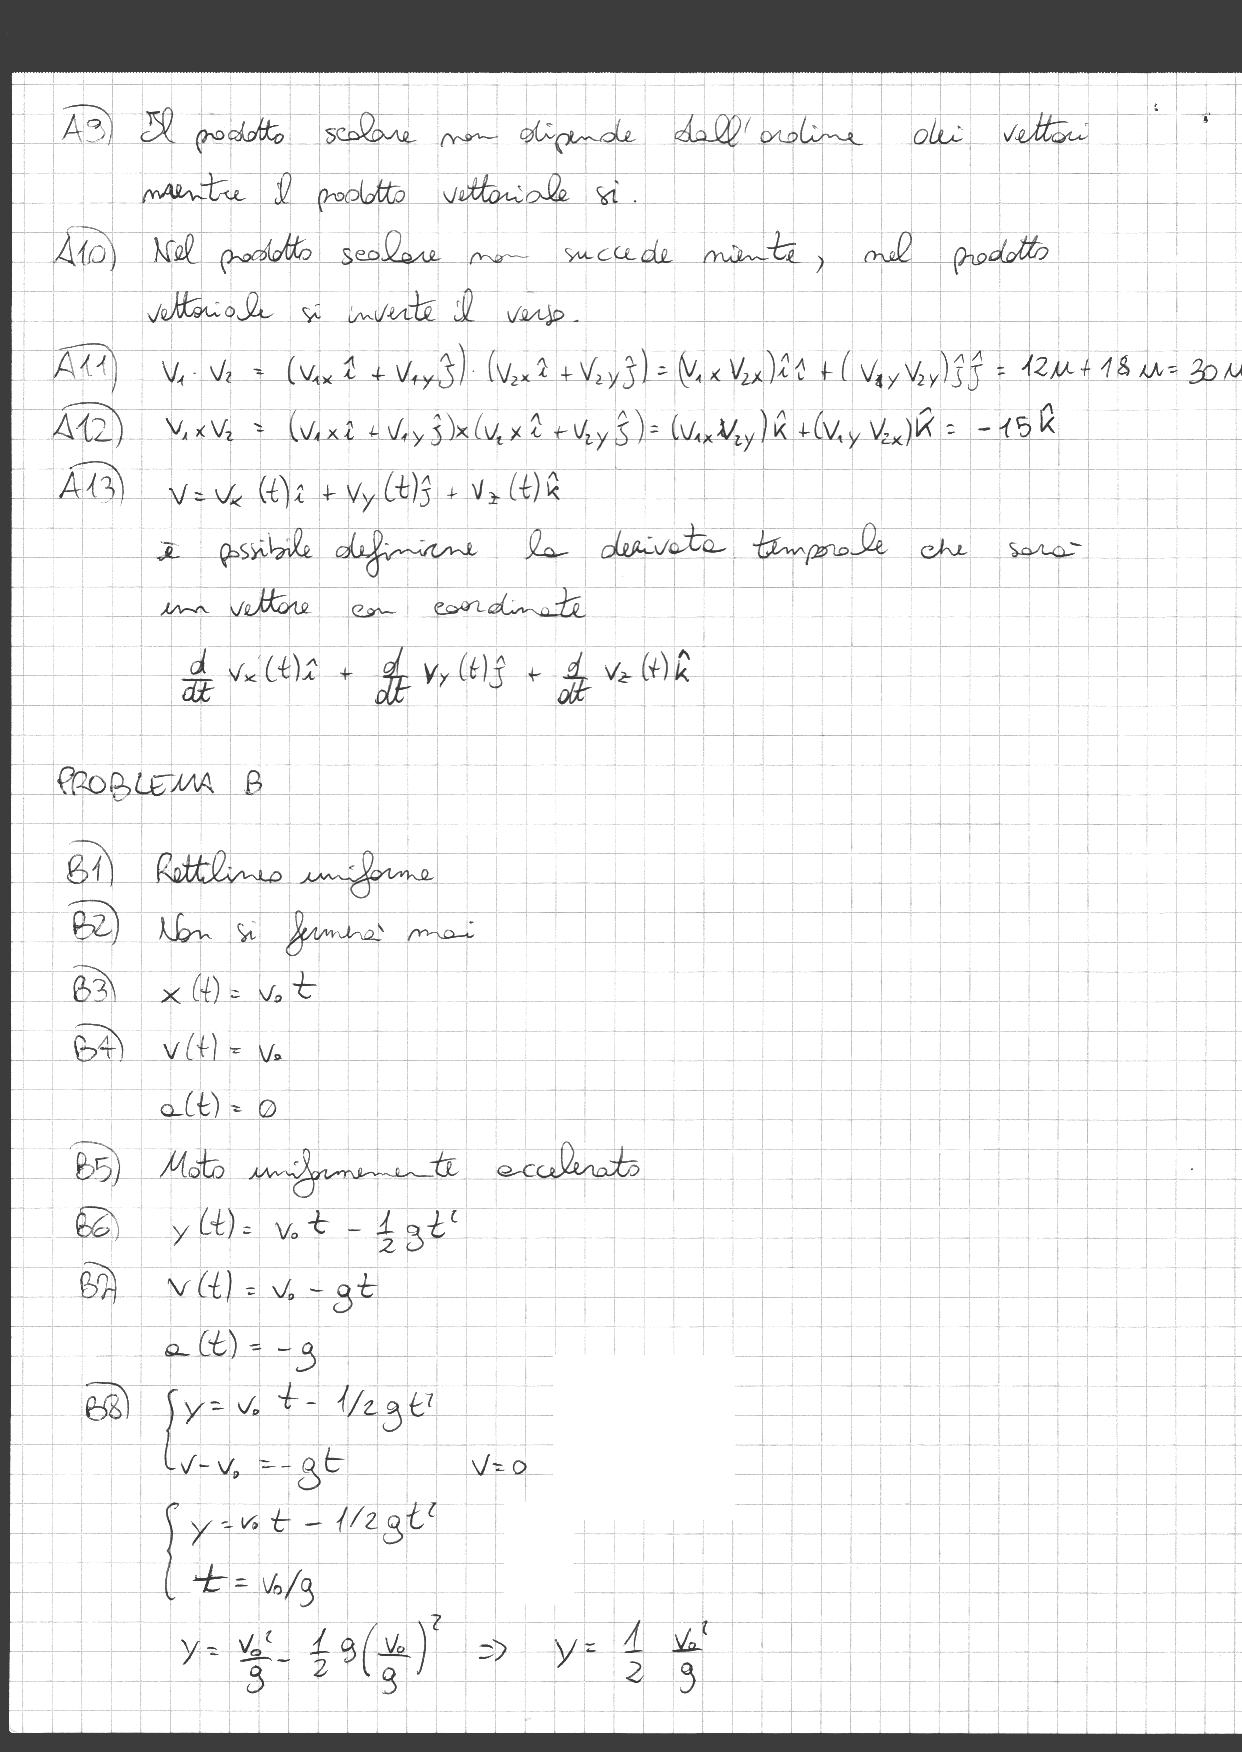 A9) Il prodotto scalare non dipende dall'ordine dei vettori
mentre il prodotto vettoriale si.
A10) Nel prodotto scalare non succede niente, nel prodotto
vettoriale si inverte il verso.
A11) V₁ · V₂ = (V₁ₓ î + V₁y ĵ) · (V₂ₓ î + V₂y ĵ) = (V₁ₓ V₂ₓ) î î + (V₁y V₂y) ĵ ĵ = 12u + 18u = 30u
A12) V₁ × V₂ = (V₁ₓ î + V₁y ĵ) × (V₂ₓ î + V₂y ĵ) = (V₁ₓ V₂y) k̂ + (V₁y V₂ₓ) k̂ = -15 k̂
A13) V = Vₓ (t) î + Vy (t) ĵ + Vz (t) k̂
è possibile definirne la derivata temporale che sarà
un vettore con coordinate
d/dt Vₓ (t) î + d/dt Vy (t) ĵ + d/dt Vz (t) k̂
PROBLEMA B
B1) Rettilineo uniforme
B2) Non si fermerà mai
B3) x (t) = V₀ t
B4) V (t) = V₀
a(t) = 0
B5) Moto uniformemente accelerato
B6) y (t) = V₀ t - 1/2 g t²
B7) V (t) = V₀ - gt
a (t) = -g
B8) { y = V₀ t - 1/2 g t²
V - V₀ = - gt V = 0
{ y = V₀ t - 1/2 g t²
t = V₀/g
y = V₀²/g - 1/2 g (V₀/g)² => y = 1/2 V₀²/g